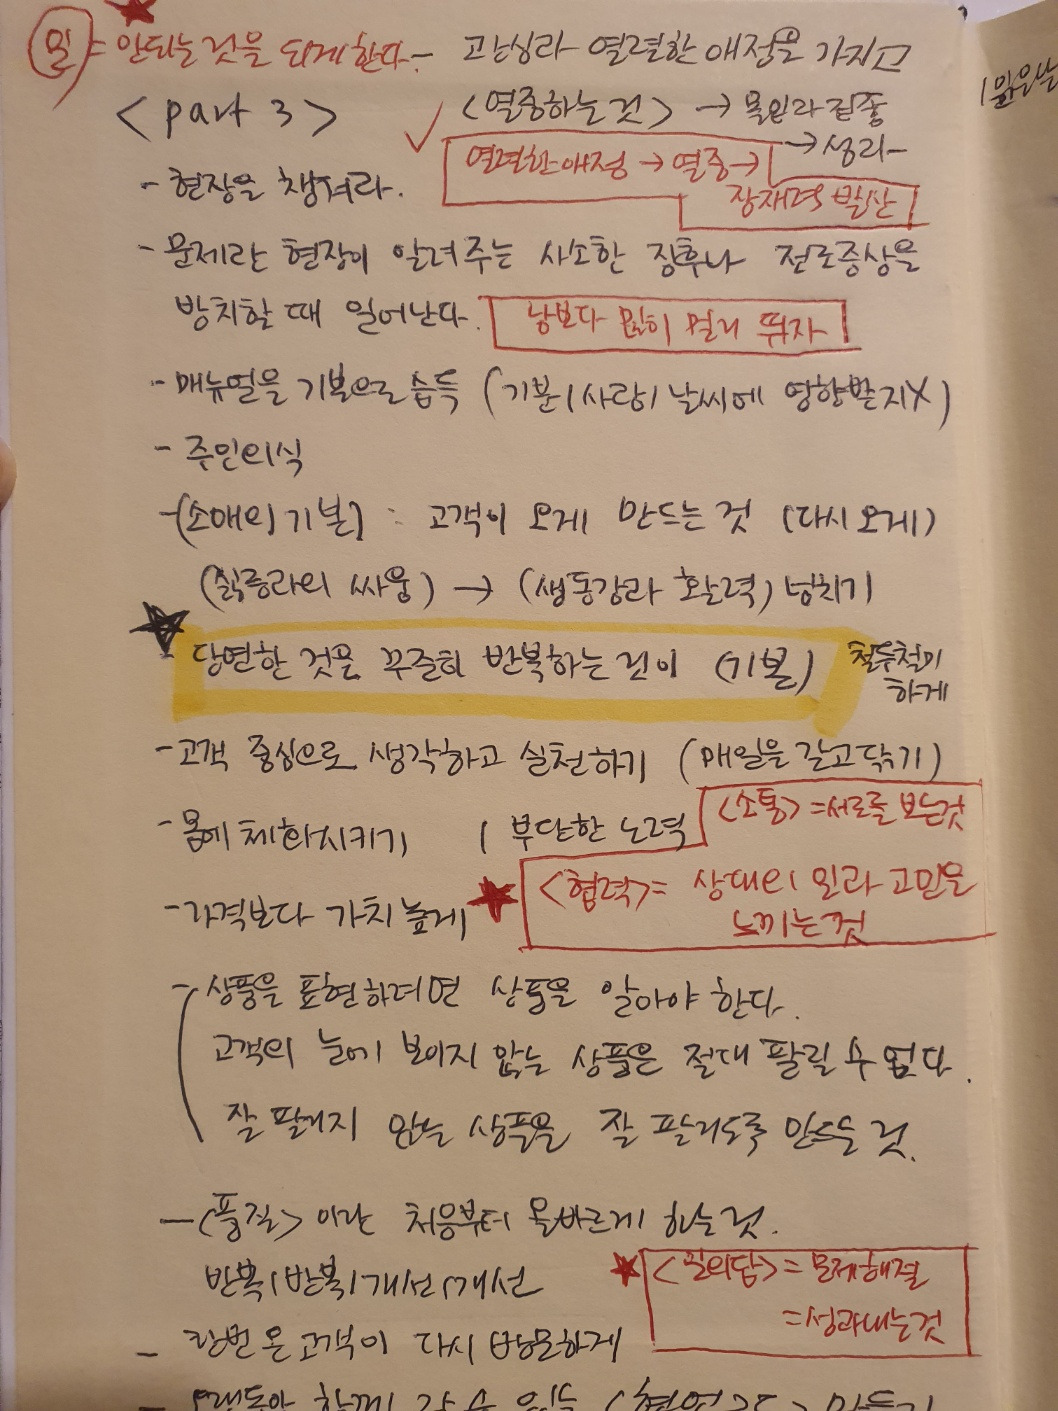 일 = 안되는 것을 되게 한다. - 관심과 열렬한 애정을 가지고
<part 3>
<열중하는 것> → 몰입과 집중
→ 승리
열렬한 애정 → 열중 →
잠재력 발산
- 현장을 챙겨라.
- 문제란 현장이 알려주는 사소한 징후나 전조증상을
방치할 때 일어난다.
남보다 많이 멀리 뛰자
- 매뉴얼을 기본으로 습득 (기분/사람/날씨에 영향받지X)
- 주인의식
- (소매의 기본) : 고객이 오게 만드는 것 (다시 오게)
(싫증과의 싸움) → (생동감과 활력) 넘치기
- 당연한 것을 꾸준히 반복하는 것이 (기본)
하게
- 고객 중심으로 생각하고 실천하기 (매일을 갈고닦기)
- 몸에 체화시키기 / 부단한 노력
<소통> = 서로를 보는것
- 가격보다 가치 높게
<협력> = 상대의 일과 고민을
느끼는 것
- 상품을 표현하려면 상품을 알아야 한다.
고객의 눈에 보이지 않는 상품은 절대 팔릴 수 없다.
잘 팔리지 않는 상품을 잘 팔리도록 만드는 것.
- <품질> 이란 처음부터 올바르게 하는 것.
반복/반복/개선/개선
<일의답> = 문제해결
= 성과내는것
- 한번 온 고객이 다시 방문하게
- 오랫동안 함께 갈 수 있는